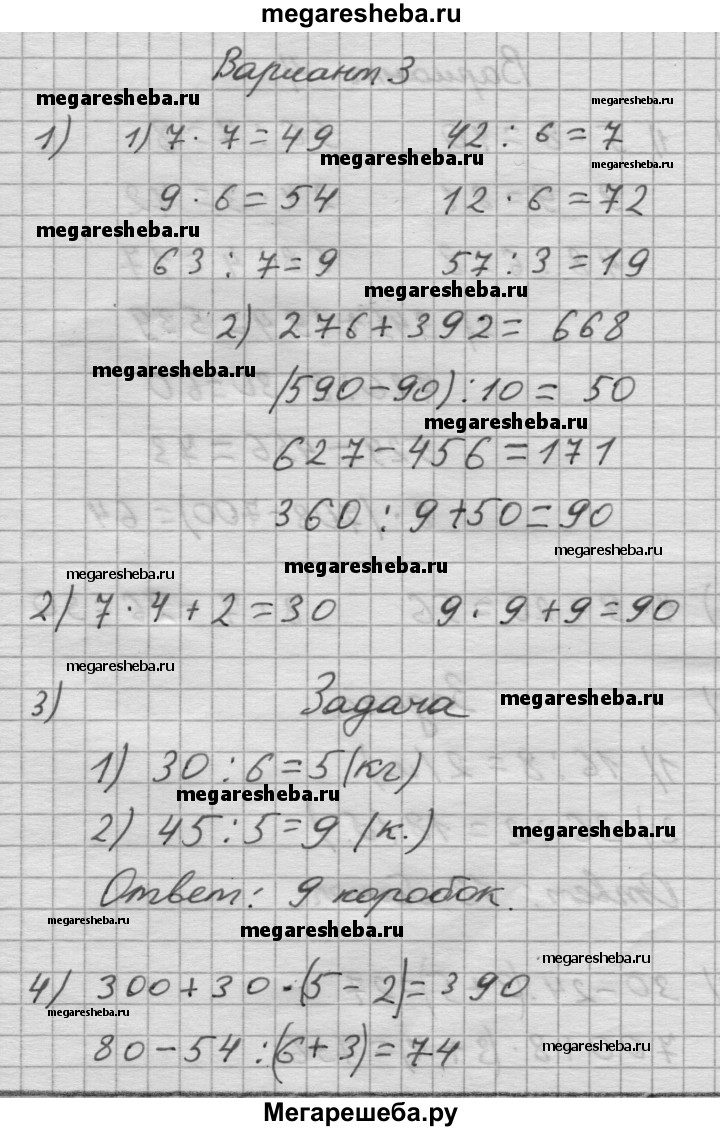 megaresheba.ru
Вариант 3
megaresheba.ru megaresheba.ru
1) 1) 7 · 7 = 49 42 : 6 = 7
megaresheba.ru megaresheba.ru
9 · 6 = 54 12 · 6 = 72
megaresheba.ru
63 : 7 = 9 57 : 3 = 19
megaresheba.ru
2) 276 + 392 = 668
megaresheba.ru
(590 - 90) : 10 = 50
megaresheba.ru
627 - 456 = 171
360 : 9 + 50 = 90
megaresheba.ru
megaresheba.ru megaresheba.ru
2) 7 · 4 + 2 = 30 9 · 9 + 9 = 90
megaresheba.ru
3) Задача megaresheba.ru
1) 30 : 6 = 5 (кг)
megaresheba.ru
2) 45 : 5 = 9 (к.) megaresheba.ru
Ответ: 9 коробок.
megaresheba.ru megaresheba.ru
megaresheba.ru
4) 300 + 30 · (5 - 2) = 390
megaresheba.ru
80 - 54 : (6 + 3) = 74 megaresheba.ru
Мегарешеба.ру